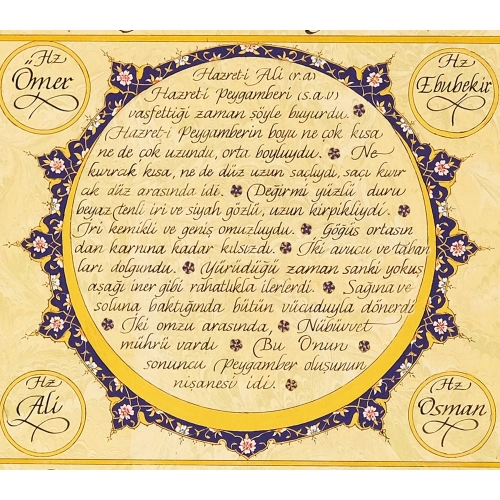 Hz Ömer
Hz Ebubekir
Hazret-i Ali (r.a)
Hazret-i Peygamberi (s.a.v)
vasfettiği zaman şöyle buyurdu.
Hazret-i Peygamberin boyu ne çok kısa
ne de çok uzundu, orta boyluydu. Ne
kıvırcık kısa, ne de düz uzun saçlıydı, saçı kıvır
cık düz arasında idi. Değirmi yüzlü duru
beyaz tenli iri ve siyah gözlü, uzun kirpikliydi.
İri kemikli ve geniş omuzluydu. Göğüs ortasın
dan karnına kadar kılsızdı. İki avucu ve taban
ları dolgundu. Yürüdüğü zaman sanki yokuş
aşağı iner gibi rahatlıkla ilerlerdi. Sağına ve
soluna baktığında bütün vücuduyla dönerdi
İki omzu arasında, Nübüvvet
mührü vardı Bu Onun
sonuncu Peygamber oluşunun
nişanesi idi.
Hz Ali
Hz Osman